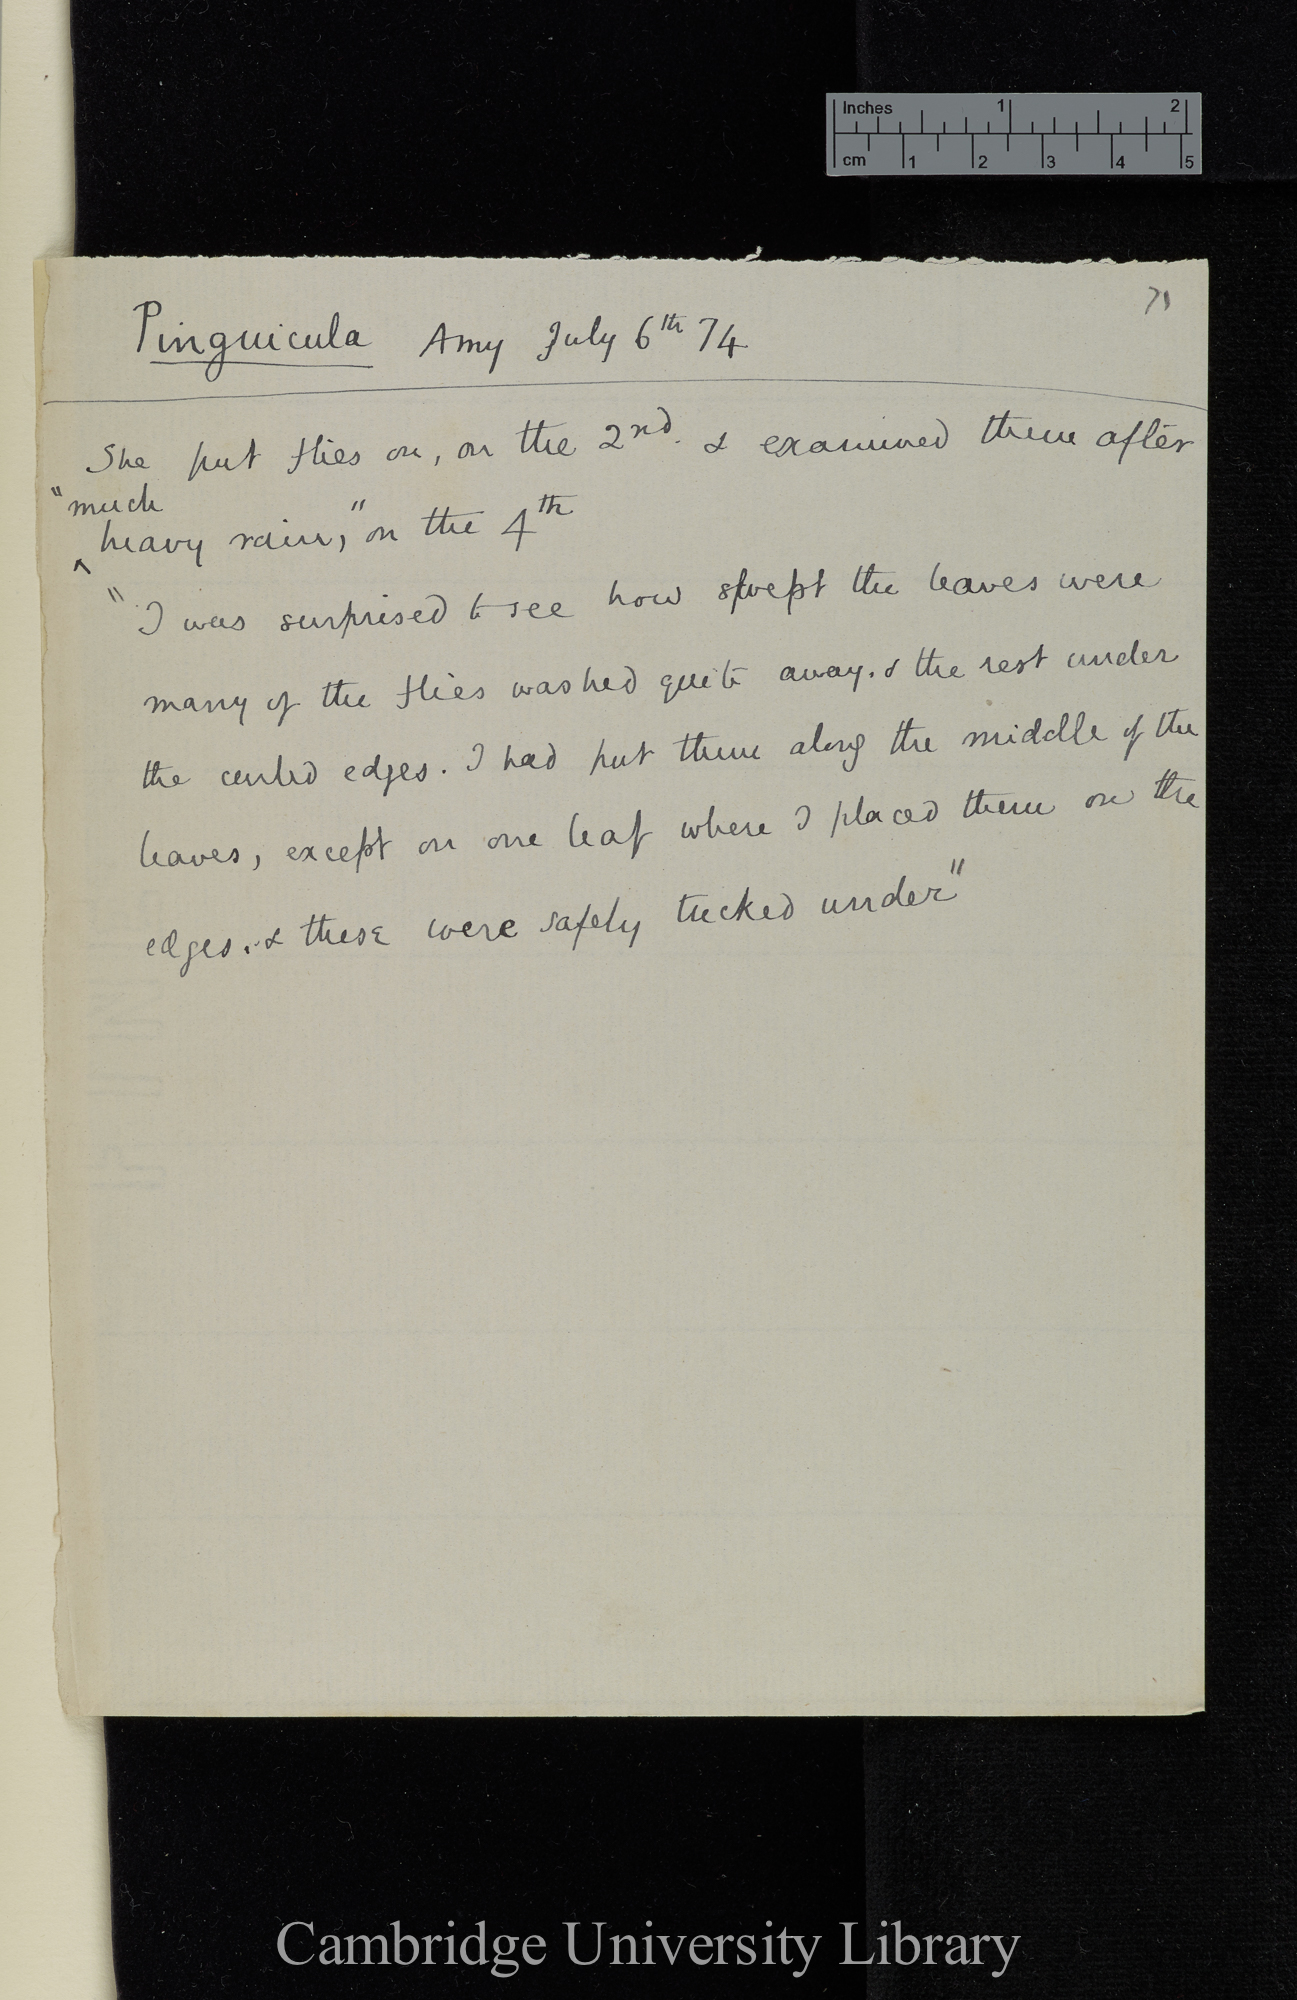 Inches 1 2
cm 1 2 3 4 5
71
Pinguicula Amy July 6th 74
She put flies on, on the 2nd. & examined them after
"much
heavy rain," on the 4th
"I was surprised to see how swept the leaves were
many of the flies washed quite away. & the rest under
the curled edges. I had put them along the middle of the
leaves, except on one leaf where I placed them on the
edges. & these were safely tucked under"
Cambridge University Library